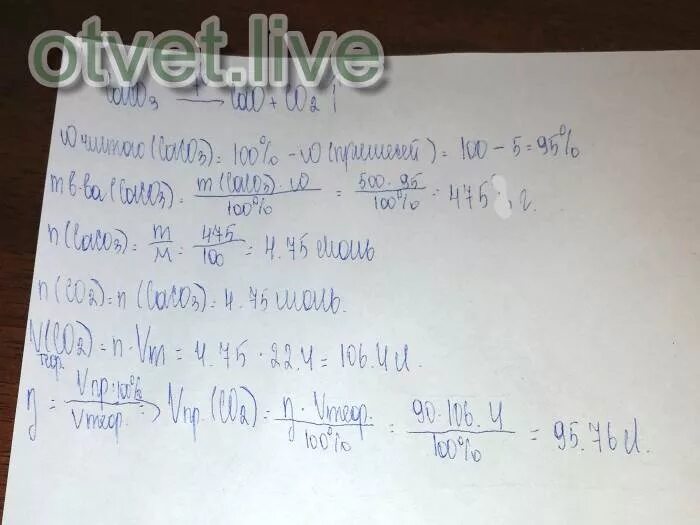 otvet.live
CaCO₃ —t→ CaO + CO₂ ↑
ω чистого (CaCO₃) = 100% - ω (примесей) = 100 - 5 = 95%
m в-ва (CaCO₃) = m(CaCO₃)·ω / 100% = 500·95 / 100% = 475 г.
n(CaCO₃) = m/M = 475/100 = 4.75 моль
n(CO₂) = n(CaCO₃) = 4.75 моль.
V(CO₂) теор. = n·Vm = 4.75 · 22.4 = 106.4 л.
η = Vпр·100% / Vтеор. → Vпр.(CO₂) = η·Vтеор. / 100% = 90·106.4 / 100% = 95.76 л.